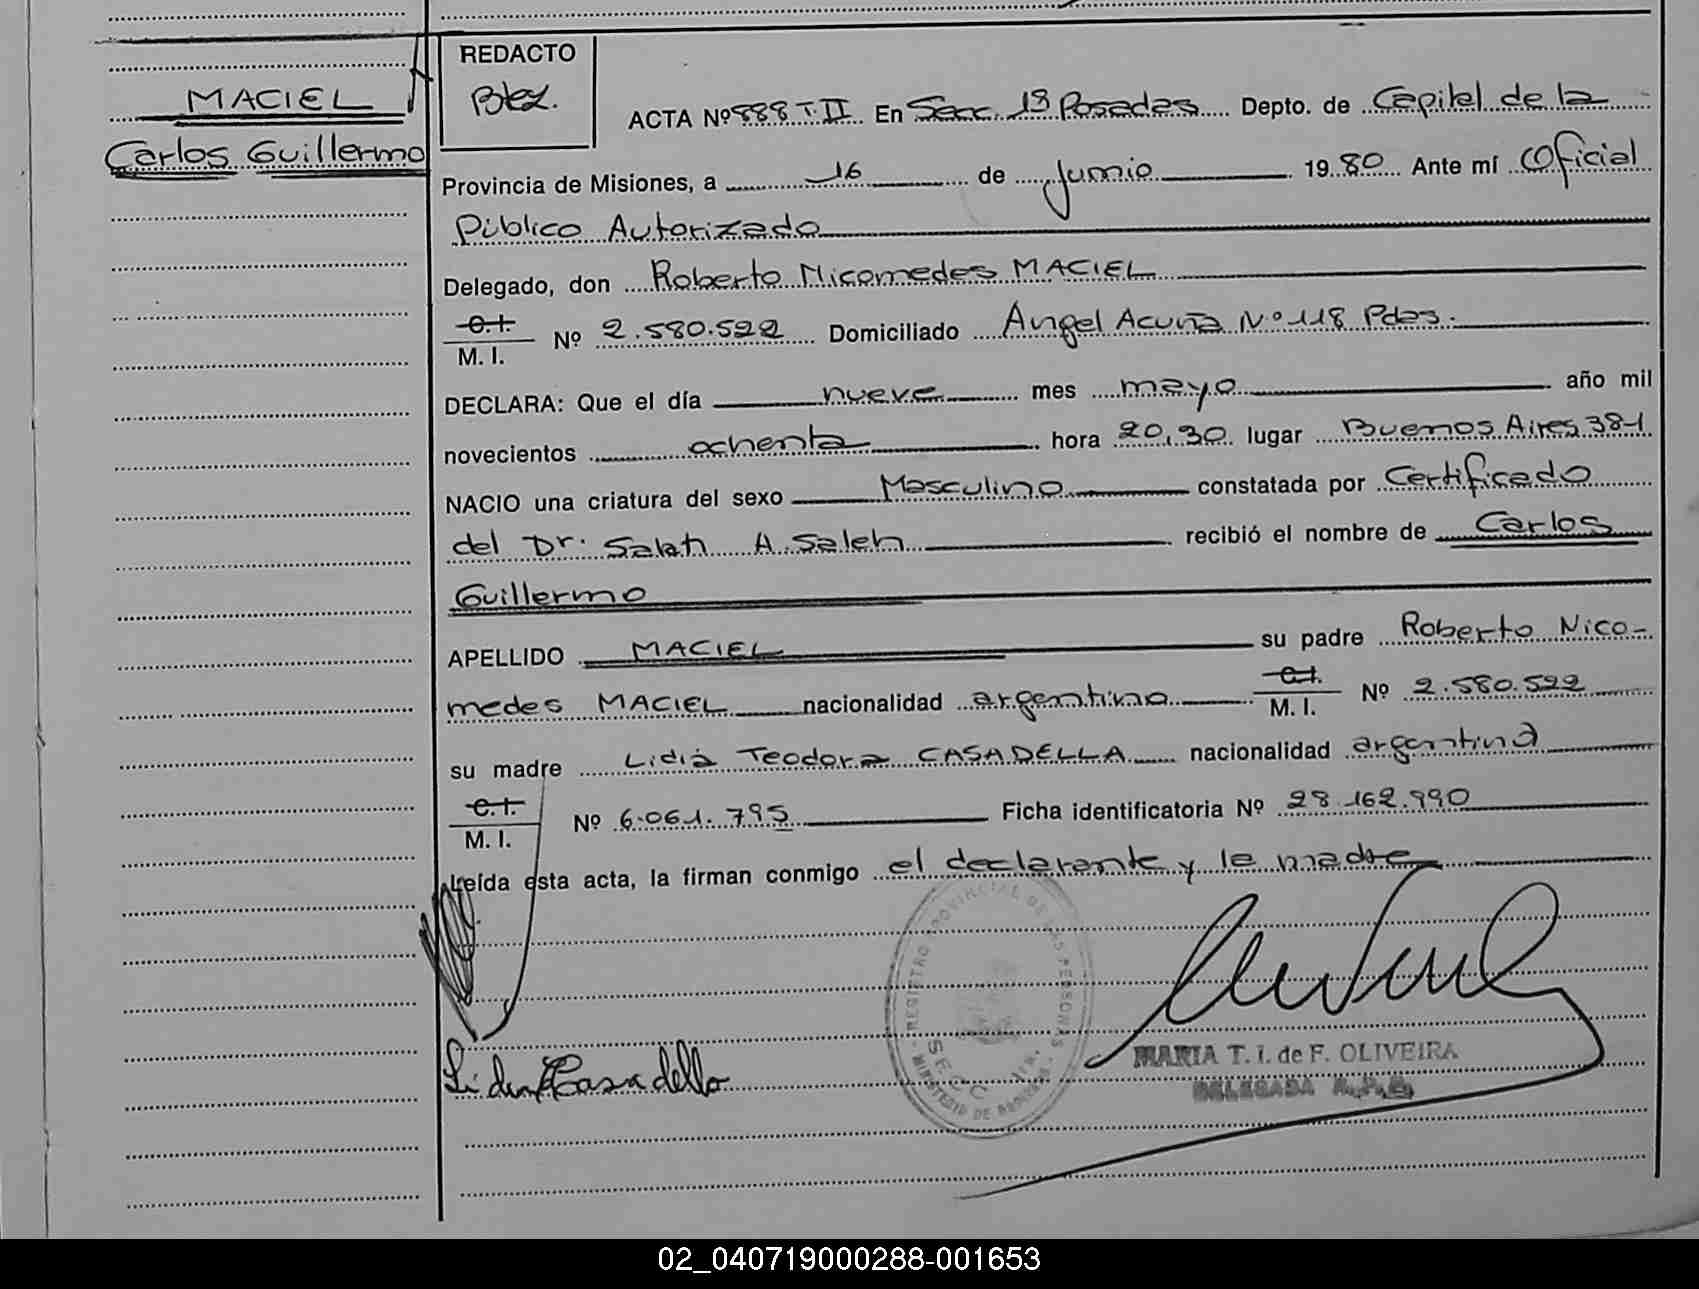 MACIEL
Carlos Guillermo
REDACTO
ACTA Nº 888 T. II En Secc. 1ª Posadas Depto. de Capital de la
Provincia de Misiones, a 16 de Junio 1980 Ante mí Oficial
Público Autorizado
Delegado, don Roberto Nicomedes MACIEL
C.I.
M. I. Nº 2.580.522 Domiciliado Angel Acuña Nº 118 Pdas.
DECLARA: Que el día nueve mes mayo año mil
novecientos ochenta hora 20,30 lugar Buenos Aires 381
NACIO una criatura del sexo Masculino constatada por Certificado
del Dr. Salah A. Saleh recibió el nombre de Carlos
Guillermo
APELLIDO MACIEL su padre Roberto Nico-
medes MACIEL nacionalidad argentino C.I. M. I. Nº 2.580.522
su madre Lidia Teodora CASADELLA nacionalidad argentina
C.I.
M. I. Nº 6.061.795 Ficha identificatoria Nº 28.162.990
Leída esta acta, la firman conmigo el declarante y la madre
REGISTRO PROVINCIAL DE LAS PERSONAS
MINISTERIO DE
SECC. 1a.
MARIA T. I. de F. OLIVEIRA
DELEGADA R.P.P.
Casadella
02_040719000288-001653